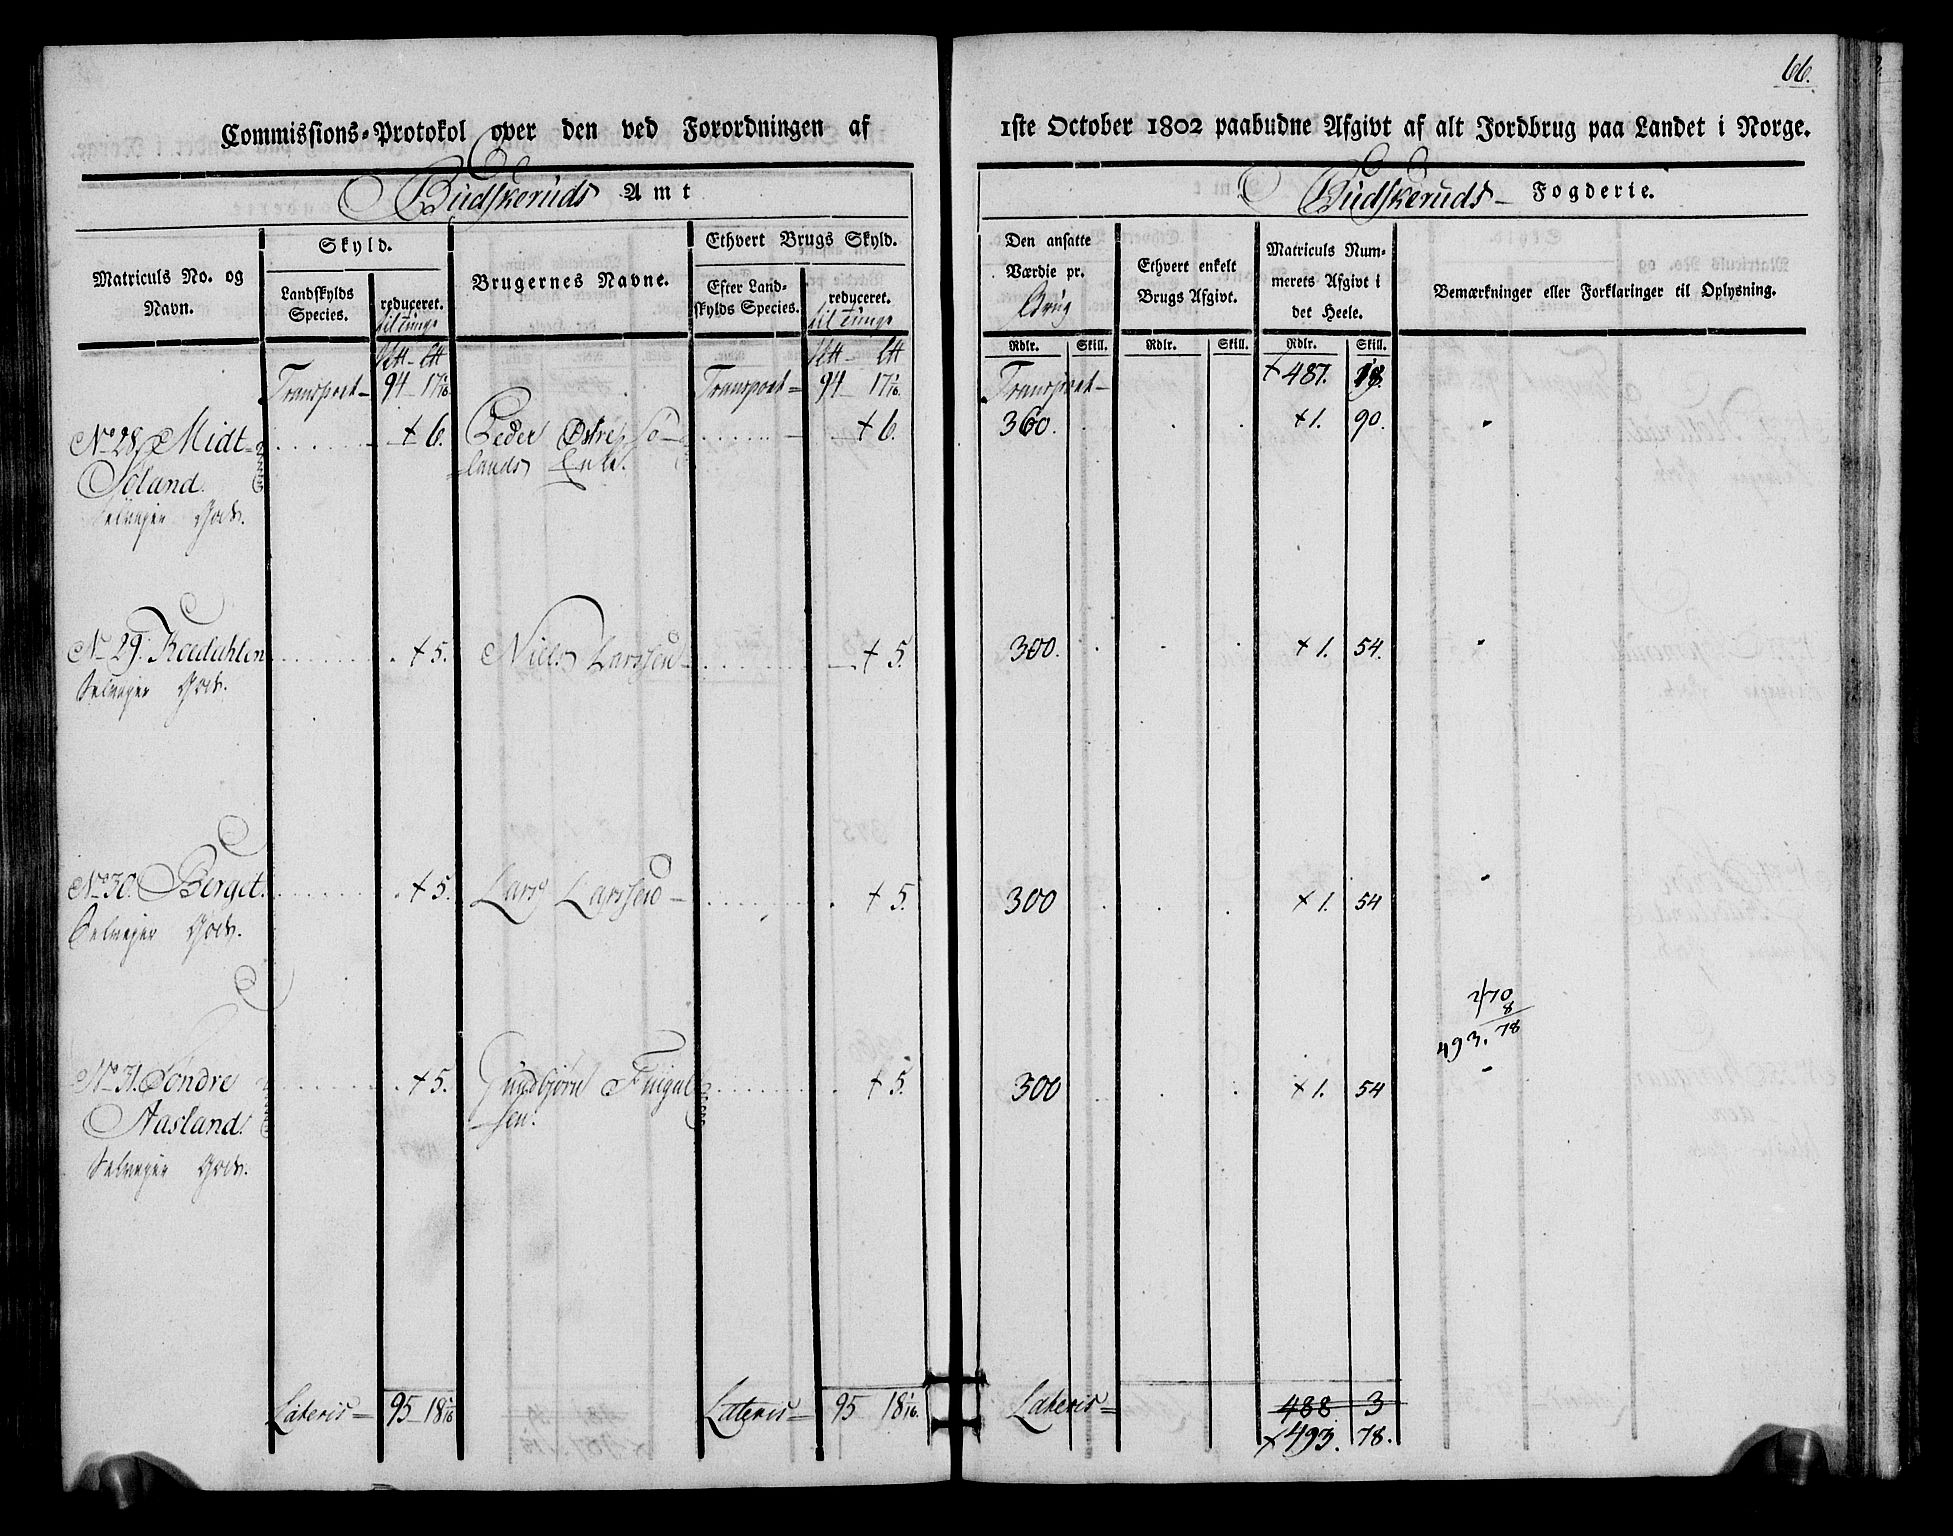 66.
Commissions-Protokol over den ved Forordningen af 1ste October 1802 paabudne Afgivt af alt Jordbrug paa Landet i Norge.
Budskeruds Amt
Budskeruds Fogderie.
Matriculs No. og Navn.
Skyld.
Landskylds Species.
reduceret. til Tunge
Brugernes Navne.
Ethvert Brugs Skyld.
Efter Landskylds Species.
reduceret. til Tunge
Den ansatte Værdie pr. Brug
Ethvert enkelt Brugs Afgivt.
Matriculs Nummerets Afgivt i det Heele.
Bemærkninger eller Forklaringer til Oplysning.
Rdlr. Skill. Rdlr. Skill. Rdlr. Skill.
Transport 94 17 1/16 Transport 94 17 1/16. Transport + 487. 18.
No 28. Midt + 6. Peder Østre Sø- + 6. 360. +1. 90.
Søland. lands Enke.
Selveyer Gods.
No 29. + 5. Niels Larssen + 5. 300. +1. 54.
Selveyer Gods.
No 30. Berget. + 5. Lars Larssen + 5. 300 +1. 54
Selveyer Gods.
70
8
493. 78
No 31. Søndre + 5. Gundbjørn + 5. 300 +1. 54
Aasland. sen.
Selveyer Gods.
Lateris 95 18 1/16 Lateris 95 18 1/16. Lateris 488 3
+493. 78.